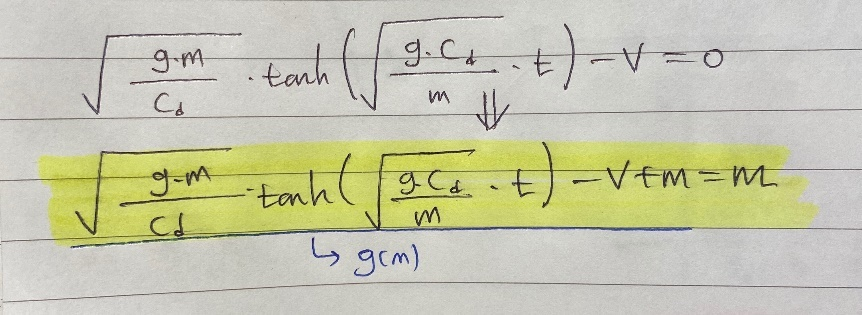 √(g.m / Cd) · tanh(√(g.Cd / m) · t) − V = 0
⇓
√(g.m / Cd) · tanh(√(g.Cd / m) · t) − V + m = m
↳ g(m)